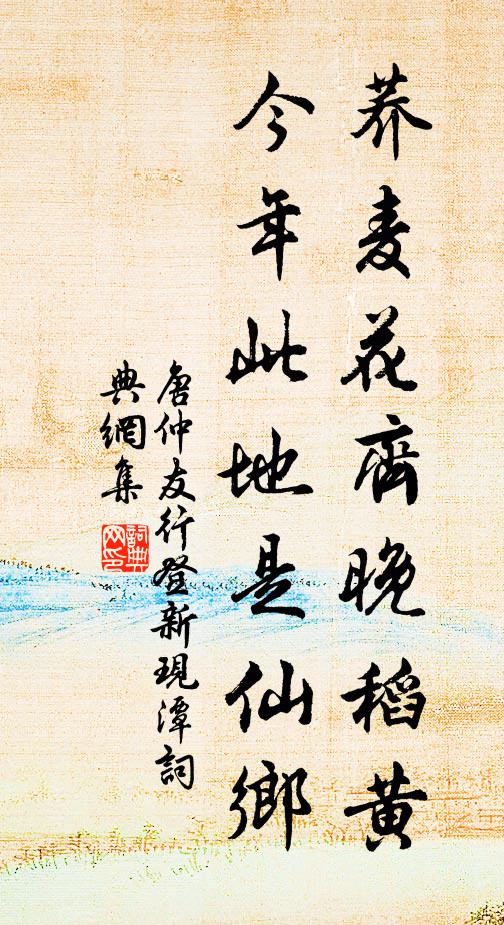 荞麦花齊晚稻黄
今年此地是仙鄉
唐仲友行登新現潭詞
典網集
詞典
网印